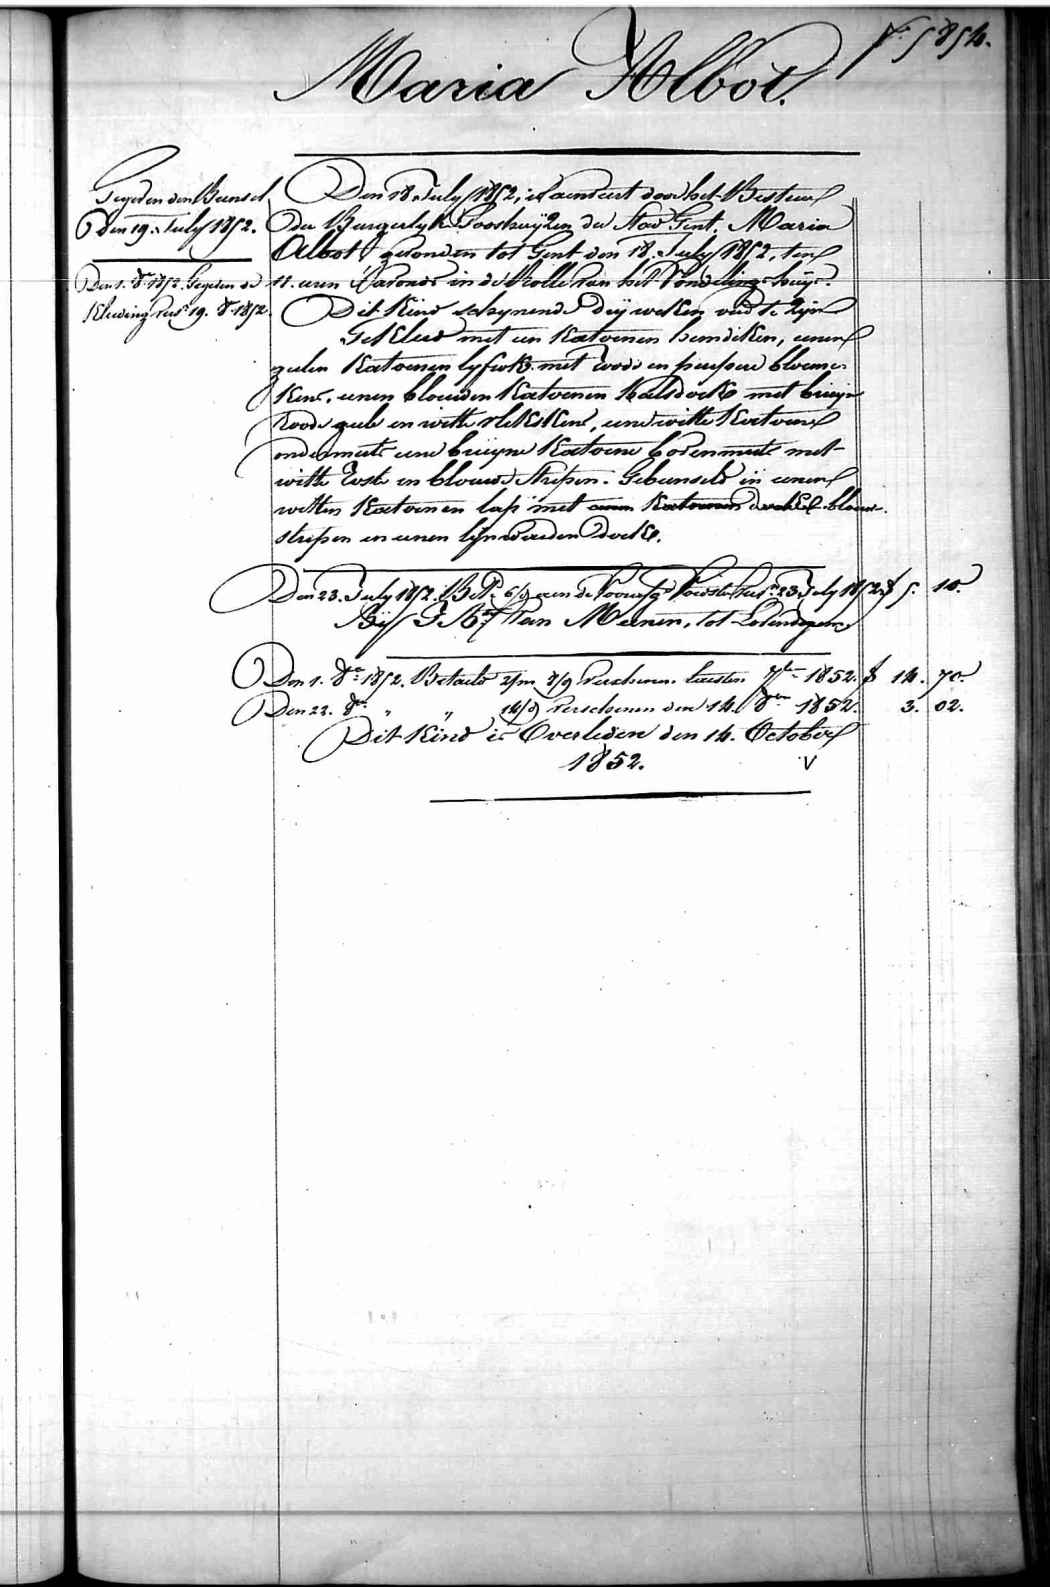 N.º 5854.
Maria Albot.
Gegeven den Bunsel
Den 19. July 1852.
Den 1. 8.re 1852. Gegeven de
Kleeding 19. 8. 1852
Den 18. July 1852, is aenveert door het Bestuer
der Burgerlyke Godshuyzen der Stad Gent, Maria
Albot, gevonden tot Gent den 18. July 1852, ten
11. uren s'avonds in de Rolle van het Vondelings-huys.
Dit Kind schynende dry weken oud te zyn
Gekleed met een Katoenen hemdeken, eenen
gelen Katoenen lyfrok met roode en purpere bloeme-
kens, eenen blouwen Katoenen halsdoek met bruyn
roode gele en witte vlekskens, eene witte Katoene
ondermuts eene bruyne Katoene bovenmuts met
witte en blouwe strepen. Gebunseld in eenen
witten Katoenen lap met eenen Katoenen doek blouwe
strepen en eenen lynwaeden doek.
Den 23. July 1852. Bet.d 6/9 aen de Voedster 23. July 1852. f 5. 10.
By J. B.te Van Meenen, tot Lovendegem
Den 1. 8.re 1852. Betaeld 2/m 8/9 verschenen laesten 7.bre 1852. f 14. 70.
Den 22. 8.re " " 14/9 verschenen den 14. 8.re 1852. 3. 02.
Dit Kind is Overleden den 14. October
1852. V